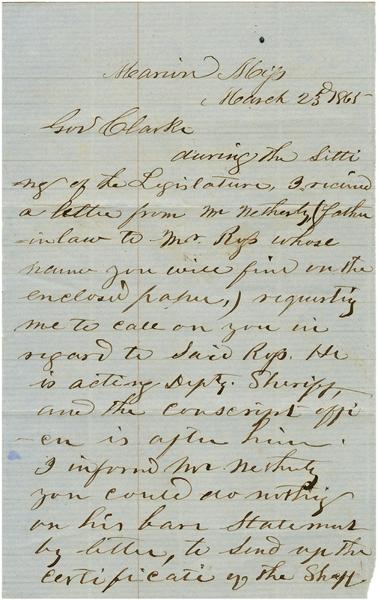 Marion Miss
March 23d 1865
Gov Clarke
during the sitti
ng of the Legislature, I recieved
a letter from Mr Netherty (father
-inlaw to Mr. Ross whose
name you will find on the
enclosed paper,) requesting
me to call on you in
regard to Said Ross. He
is acting Depty. Sheriff,
and the conscript offi
-cer is after him.
I informd Mr Netherty
you could do nothing
on his bare Statement
by letter, to Send up the
certificate of the Shff